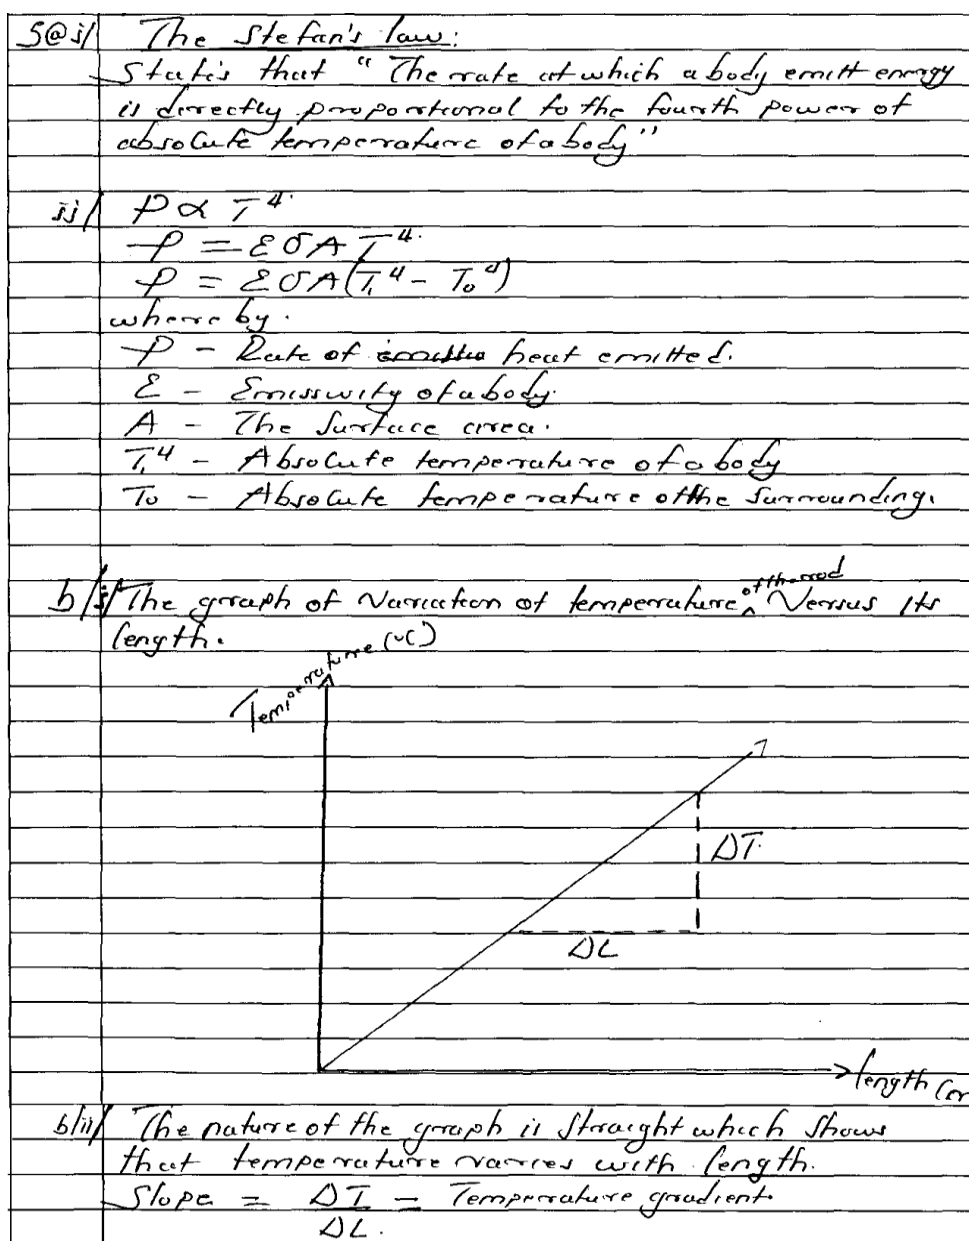 5(a) i/ The Stefan's law:
States that "The rate at which a body emitt energy
is directly proportional to the fourth power of
absolute temperature of a body"
ii/ P ∝ T⁴.
P = εσA T⁴.
P = εσA(T₁⁴ - T₀⁴)
where by.
P - Rate of heat emitted.
ε - Emissivity of a body.
A - The Surface area.
T₁⁴ - Absolute temperature of a body
T₀ - Absolute temperature of the surrounding.
b/i/ The graph of Variation of temperature of the rod Versus its
length.
Temperature (°C)
ΔT.
ΔL
length (m
b/ii/ The nature of the graph is straight which shows
that temperature varries with length.
Slope = ΔT/ΔL. = Temperature gradient.